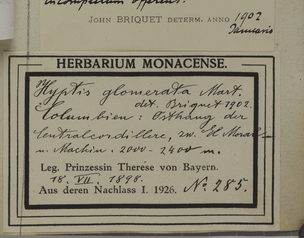 incompletum offerens.
JOHN BRIQUET DETERM. ANNO 1902
Januario
HERBARIUM MONACENSE.
Hyptis glomerata Mart.
det. Briquet 1902.
Columbien: Osthang der
Centralcordillere, zw. H Moral
u. Machin. 2000-2400 m.
Leg. Prinzessin Therese von Bayern.
18. VII. 1898.
Aus deren Nachlass I. 1926. No 285.